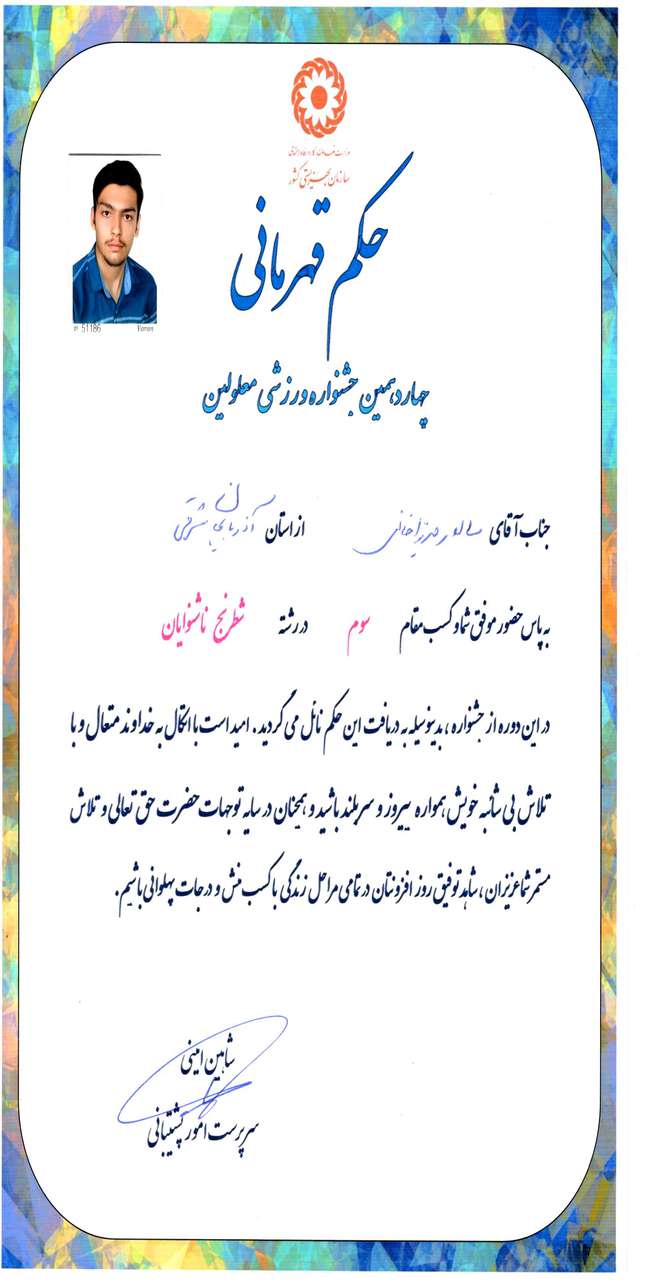 وزارت تعاون، کار و رفاه اجتماعی
سازمان بهزیستی کشور
51186
حکم قهرمانی
چهاردهمین جشنواره ورزشی معلولین
جناب آقای میرزاخانی از استان آذربایجان شرقی
به پاس حضور موفق شما و کسب مقام سوم در رشته شطرنج ناشنوایان
در این دوره از جشنواره ، بدینوسیله به دریافت این حکم نائل می گردید . امید است با اتکال به خداوند متعال و با
تلاش بی شائبه خویش همواره پیروز و سربلند باشید و همچنان در سایه توجهات حضرت حق تعالی و تلاش
مستمر شما عزیزان ، شاهد توفیق روز افزونتان در تمامی مراحل زندگی با کسب منش و درجات پهلوانی باشیم .
شاهین امینی
سرپرست امور پشتیبانی